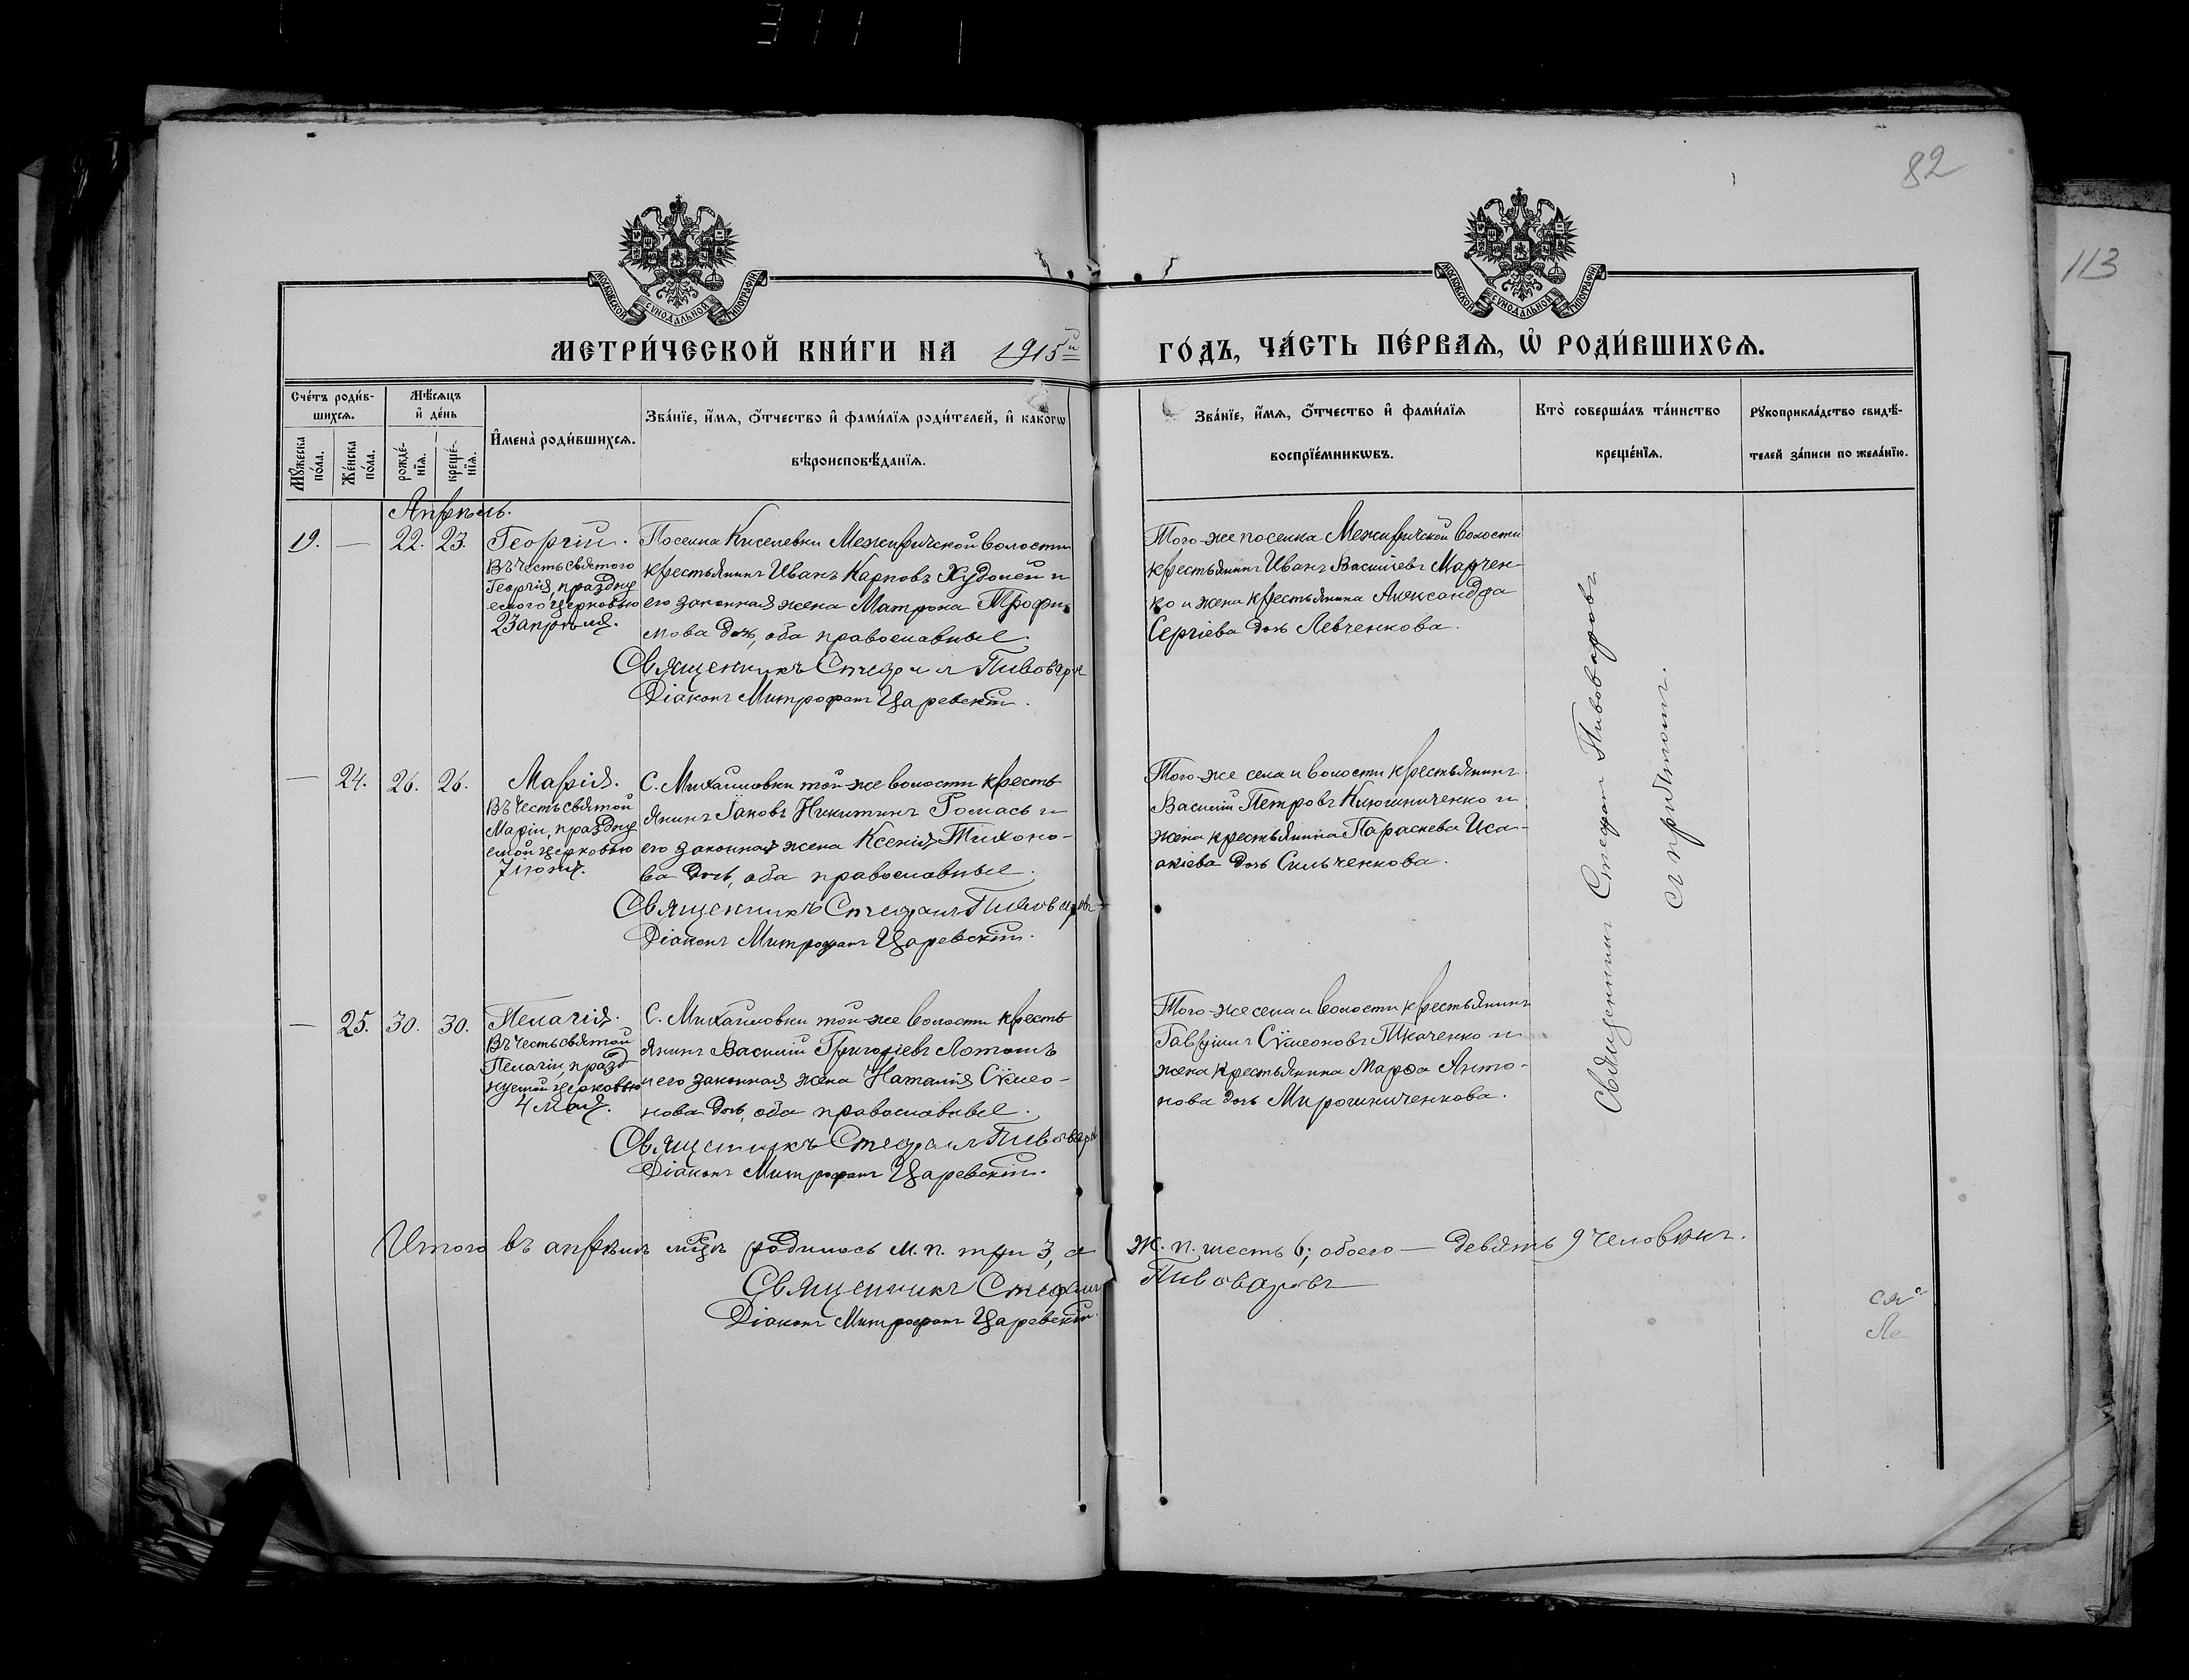 311
82
113
МОСКОВСКОЙ СѴНОДАЛЬНОЙ ТИПОГРАФІИ
МОСКОВСКОЙ СѴНОДАЛЬНОЙ ТИПОГРАФІИ
МЕТРИ́ЧЕСКОЙ КНИ́ГИ НА 1915й ГО́ДЪ, ЧА́СТЬ ПЕ́РВАѦ, Ѽ РОДИ́ВШИХСѦ.
Сче́тъ роди́в-
шихсѧ.
Мꙋ́жеска по́ла.
Же́нска по́ла.
Мѣ́сѧцъ
и҆ де́нь
рожде́-
нїѧ.
креще́-
нїѧ.
И҆мена̀ роди́вшихсѧ.
Зва́нїе, и҆́мѧ, ѻ҆́тчество и҆ фами́лїѧ роди́телей, и҆ како́гѡ
вѣроисповѣ́данїѧ.
Зва́нїе, и҆́мѧ, ѻ҆́тчество и҆ фами́лїѧ
воспрїе́мникѡвъ.
Кто̀ соверша́лъ та́инство
креще́нїѧ.
Рꙋкоприкла́дство свидѣ́-
телей за́писи по жела́нїю.
Апрѣль.
19. — 22. 23.
Георгій.
Въ честь святого
Георгія, праздну
емого церковью
23 апрѣля.
Поселка Киселевки Межиричской волости
крестьянинъ Иванъ Карповъ Худолей и
его законная жена Матрона Трофи-
мова дочь, оба православные.
Священникъ Стефанъ Пивоваровъ
Діаконъ Митрофанъ Царевскій.
Того-же поселка Межиричской волости
крестьянинъ Иванъ Васильевъ Марчен-
ко и жена крестьянина Александра
Сергіева дочь Левченкова.
— 24. 26. 26.
Марія.
Въ честь святой
Маріи, праздну
емой церковью
7 іюня.
С. Михайловки той-же волости кресть
янинъ Іаковъ Никитинъ Ромась и
его законная жена Ксенія Тихоно-
ва дочь, оба православные.
Священникъ Стефанъ Пивоваровъ
Діаконъ Митрофанъ Царевскій.
Того-же села и волости крестьянинъ
Василій Петровъ Клюшниченко и
жена крестьянина Параскева Иса-
акіева дочь Сильченкова.
— 25. 30. 30.
Пелагія.
Въ честь святой
Пелагіи, празд
нуемой церковью
4 мая.
С. Михайловки той-же волости кресть
янинъ Василій Григоріевъ Лотошъ
и его законная жена Наталія Сѵмео-
нова дочь, оба православные.
Священникъ Стефанъ Пивоваровъ
Діаконъ Митрофанъ Царевскій.
Того-же села и волости крестьянинъ
Гавріилъ Сѵмеоновъ Ткаченко и
жена крестьянина Марѳа Анто-
нова дочь Мирошниченкова.
Священникъ Стефанъ Пивоваровъ
съ причтомъ.
Итого въ апрѣлѣ мцѣ родилось м. п. три 3, а ж. п. шесть 6; обоего — девять 9 человѣкъ.
Священникъ Стефанъ Пивоваровъ
Діаконъ Митрофанъ Царевскій.